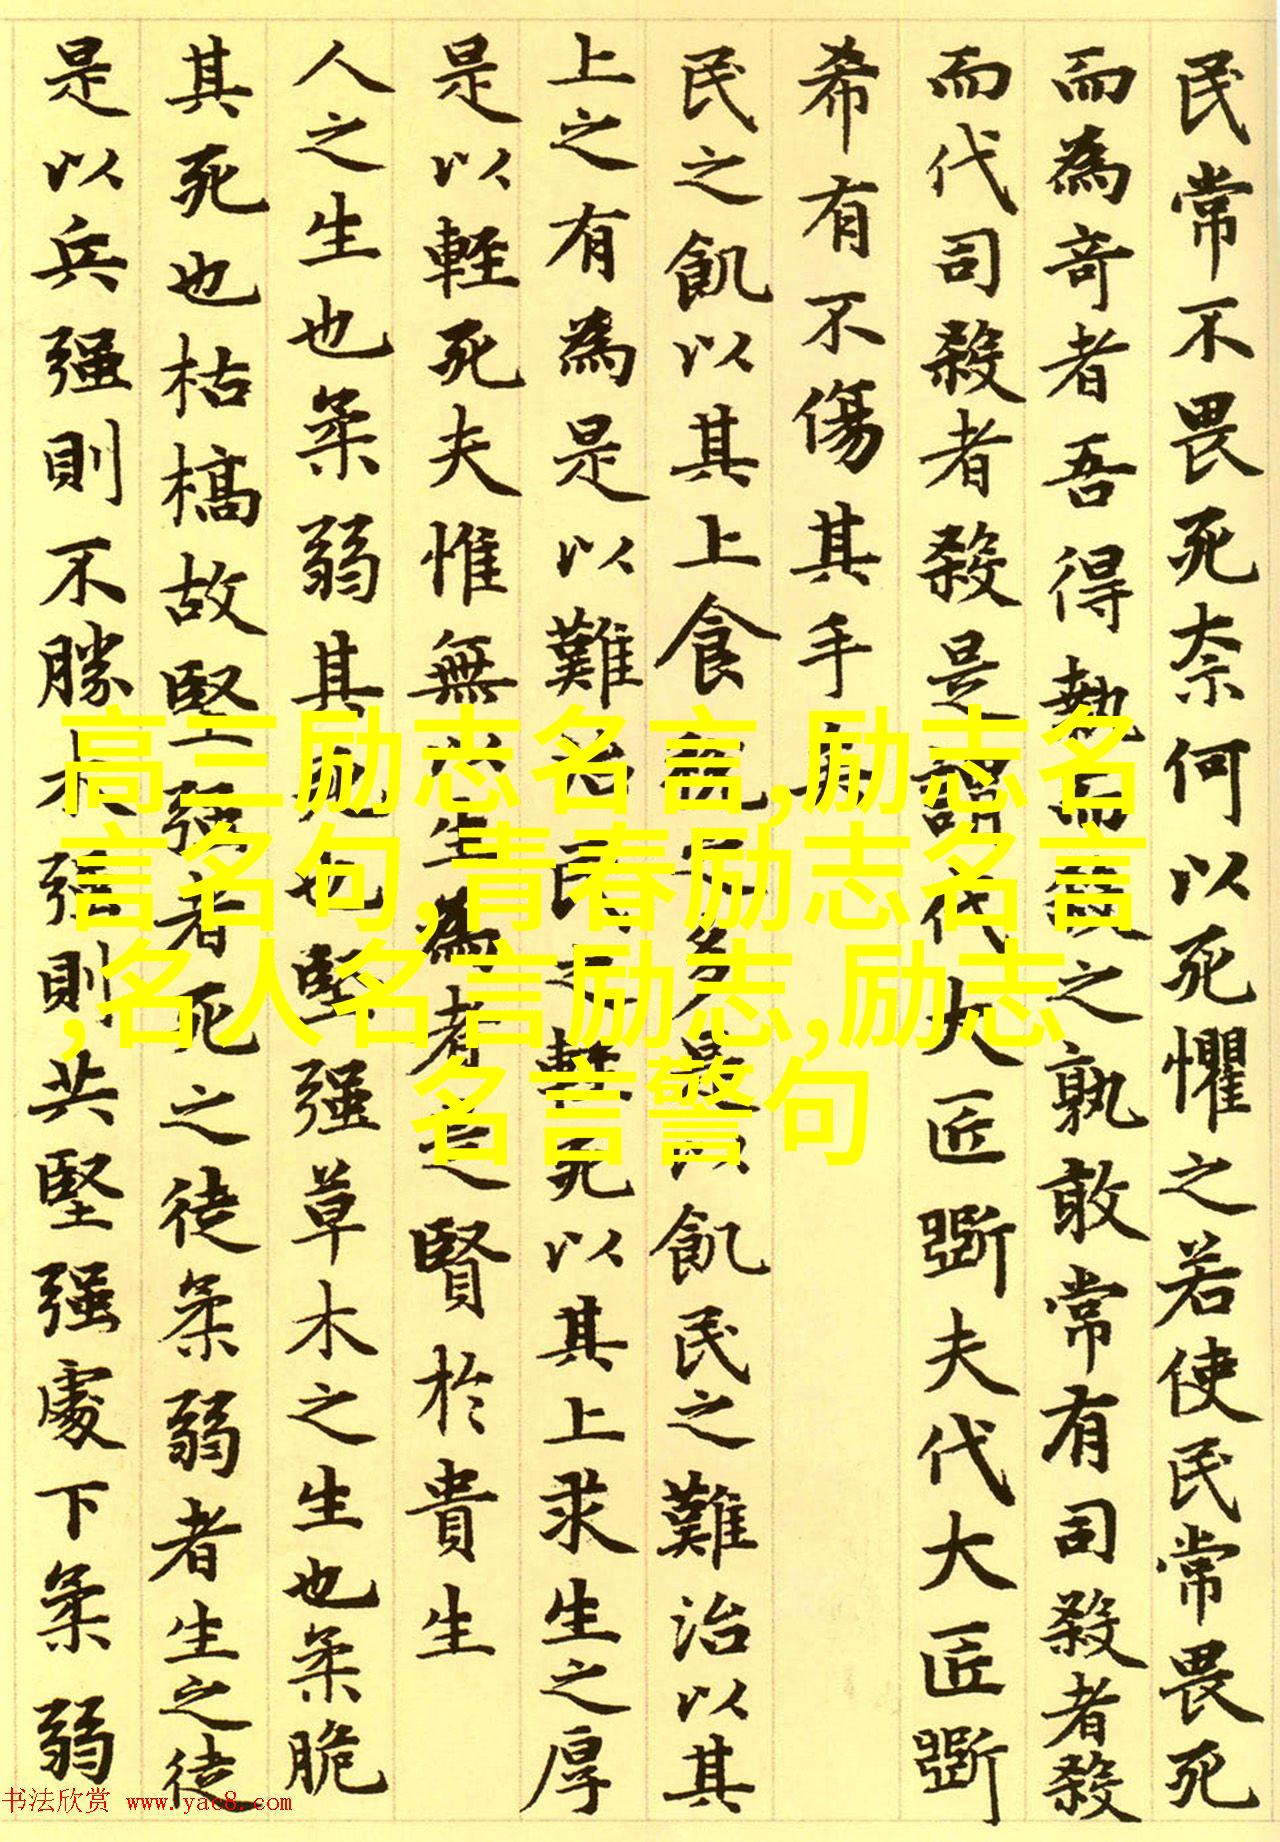 民常不畏死奈何以死懼之若使民常畏死
而為奇者吾得執而殺之孰敢常有司殺者殺
而代司殺者殺是謂代大匠斲夫代大匠斲
希有不傷其手矣
民之飢以其上食稅之多是以飢民之難治以其
上之有為是以難治民之輕死以其上求生之厚
是以輕死夫惟無以生為者是賢於貴生
人之生也柔弱其死也堅强草木之生也柔脆
其死也枯槁故堅强者死之徒柔弱者生之徒
是以兵强則不勝木强則共堅强處下柔弱
高三励志名言,励志名
言名句,青春励志名言
,名人名言励志,励志
名言警句
书法欣赏 www.yac8.com